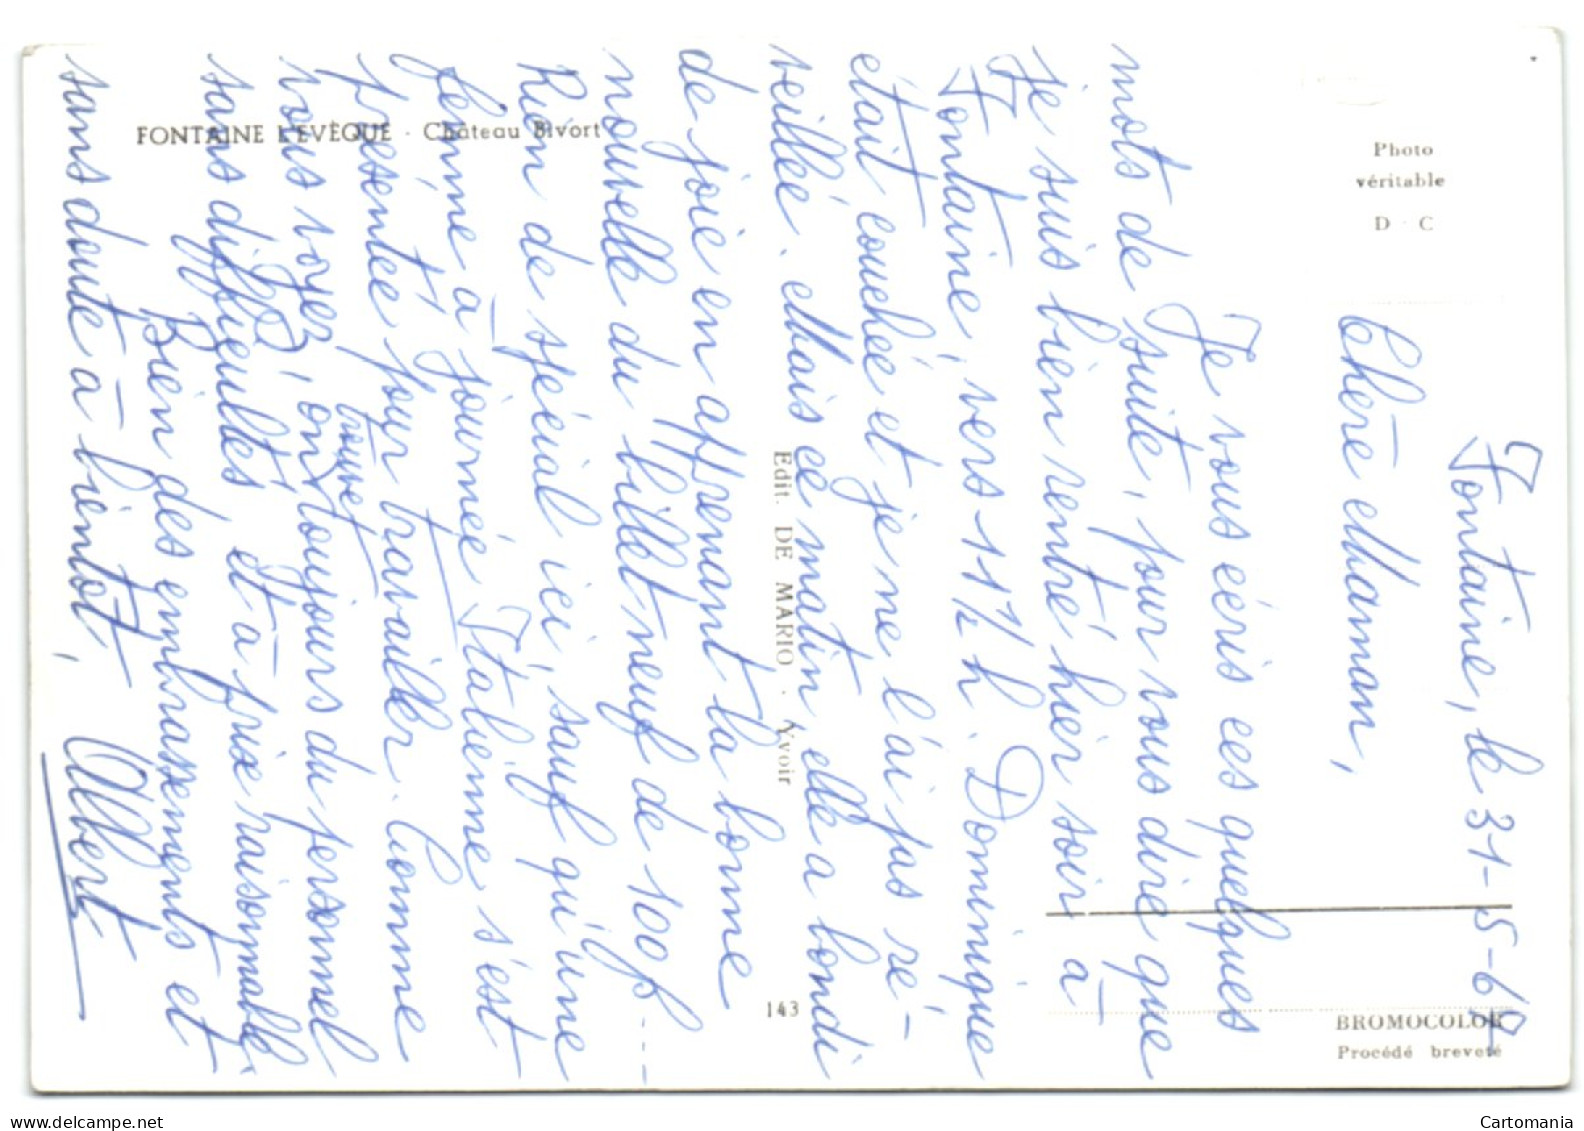 FONTAINE L'EVÈQUE · Château Bivort
Photo
véritable
D · C
Edit. DE MARIO · Yvoir
143
BROMOCOLOR
Procédé breveté
Fontaine, le 31-5-67
Chère Maman,
Je vous écris ces quelques
mots de suite, pour vous dire que
je suis bien rentré hier soir à
Fontaine, vers 11½ h. Dominique
était couchée et je ne l'ai pas ré-
veillée. Mais ce matin, elle a bondi
de joie en apprenant la bonne
nouvelle du billet neuf de 100f....
Rien de spécial ici, sauf qu'une
femme à journée Italienne s'est
présentée pour travailler. Comme
vous voyez, on trouve toujours du personnel
sans difficultés, et à prix raisonnable.
Bien des embrassements et
sans doute à bientôt,
Albert
www.delcampe.net
Cartomania